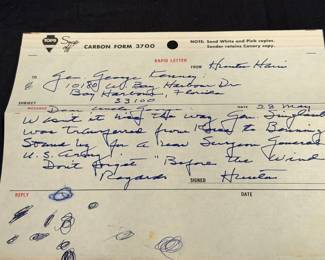 TOPS
Snap off
CARBON FORM 3700
NOTE: Send White and Pink copies.
Sender retains Canary copy.
RAPID LETTER
TO Gen George Kenney
FROM Hunter
10180 W. Bay Harbour Dr
Bay Harbour, Florida
33100
SUBJECT
MESSAGE Dear Uncle George DATE 28 May
Wasn't it the way Gen
was transferred from to
Stand by for a new Surgeon General
U.S. Army!
Don't forget "Before the Wind
Regards SIGNED Hunter
REPLY DATE